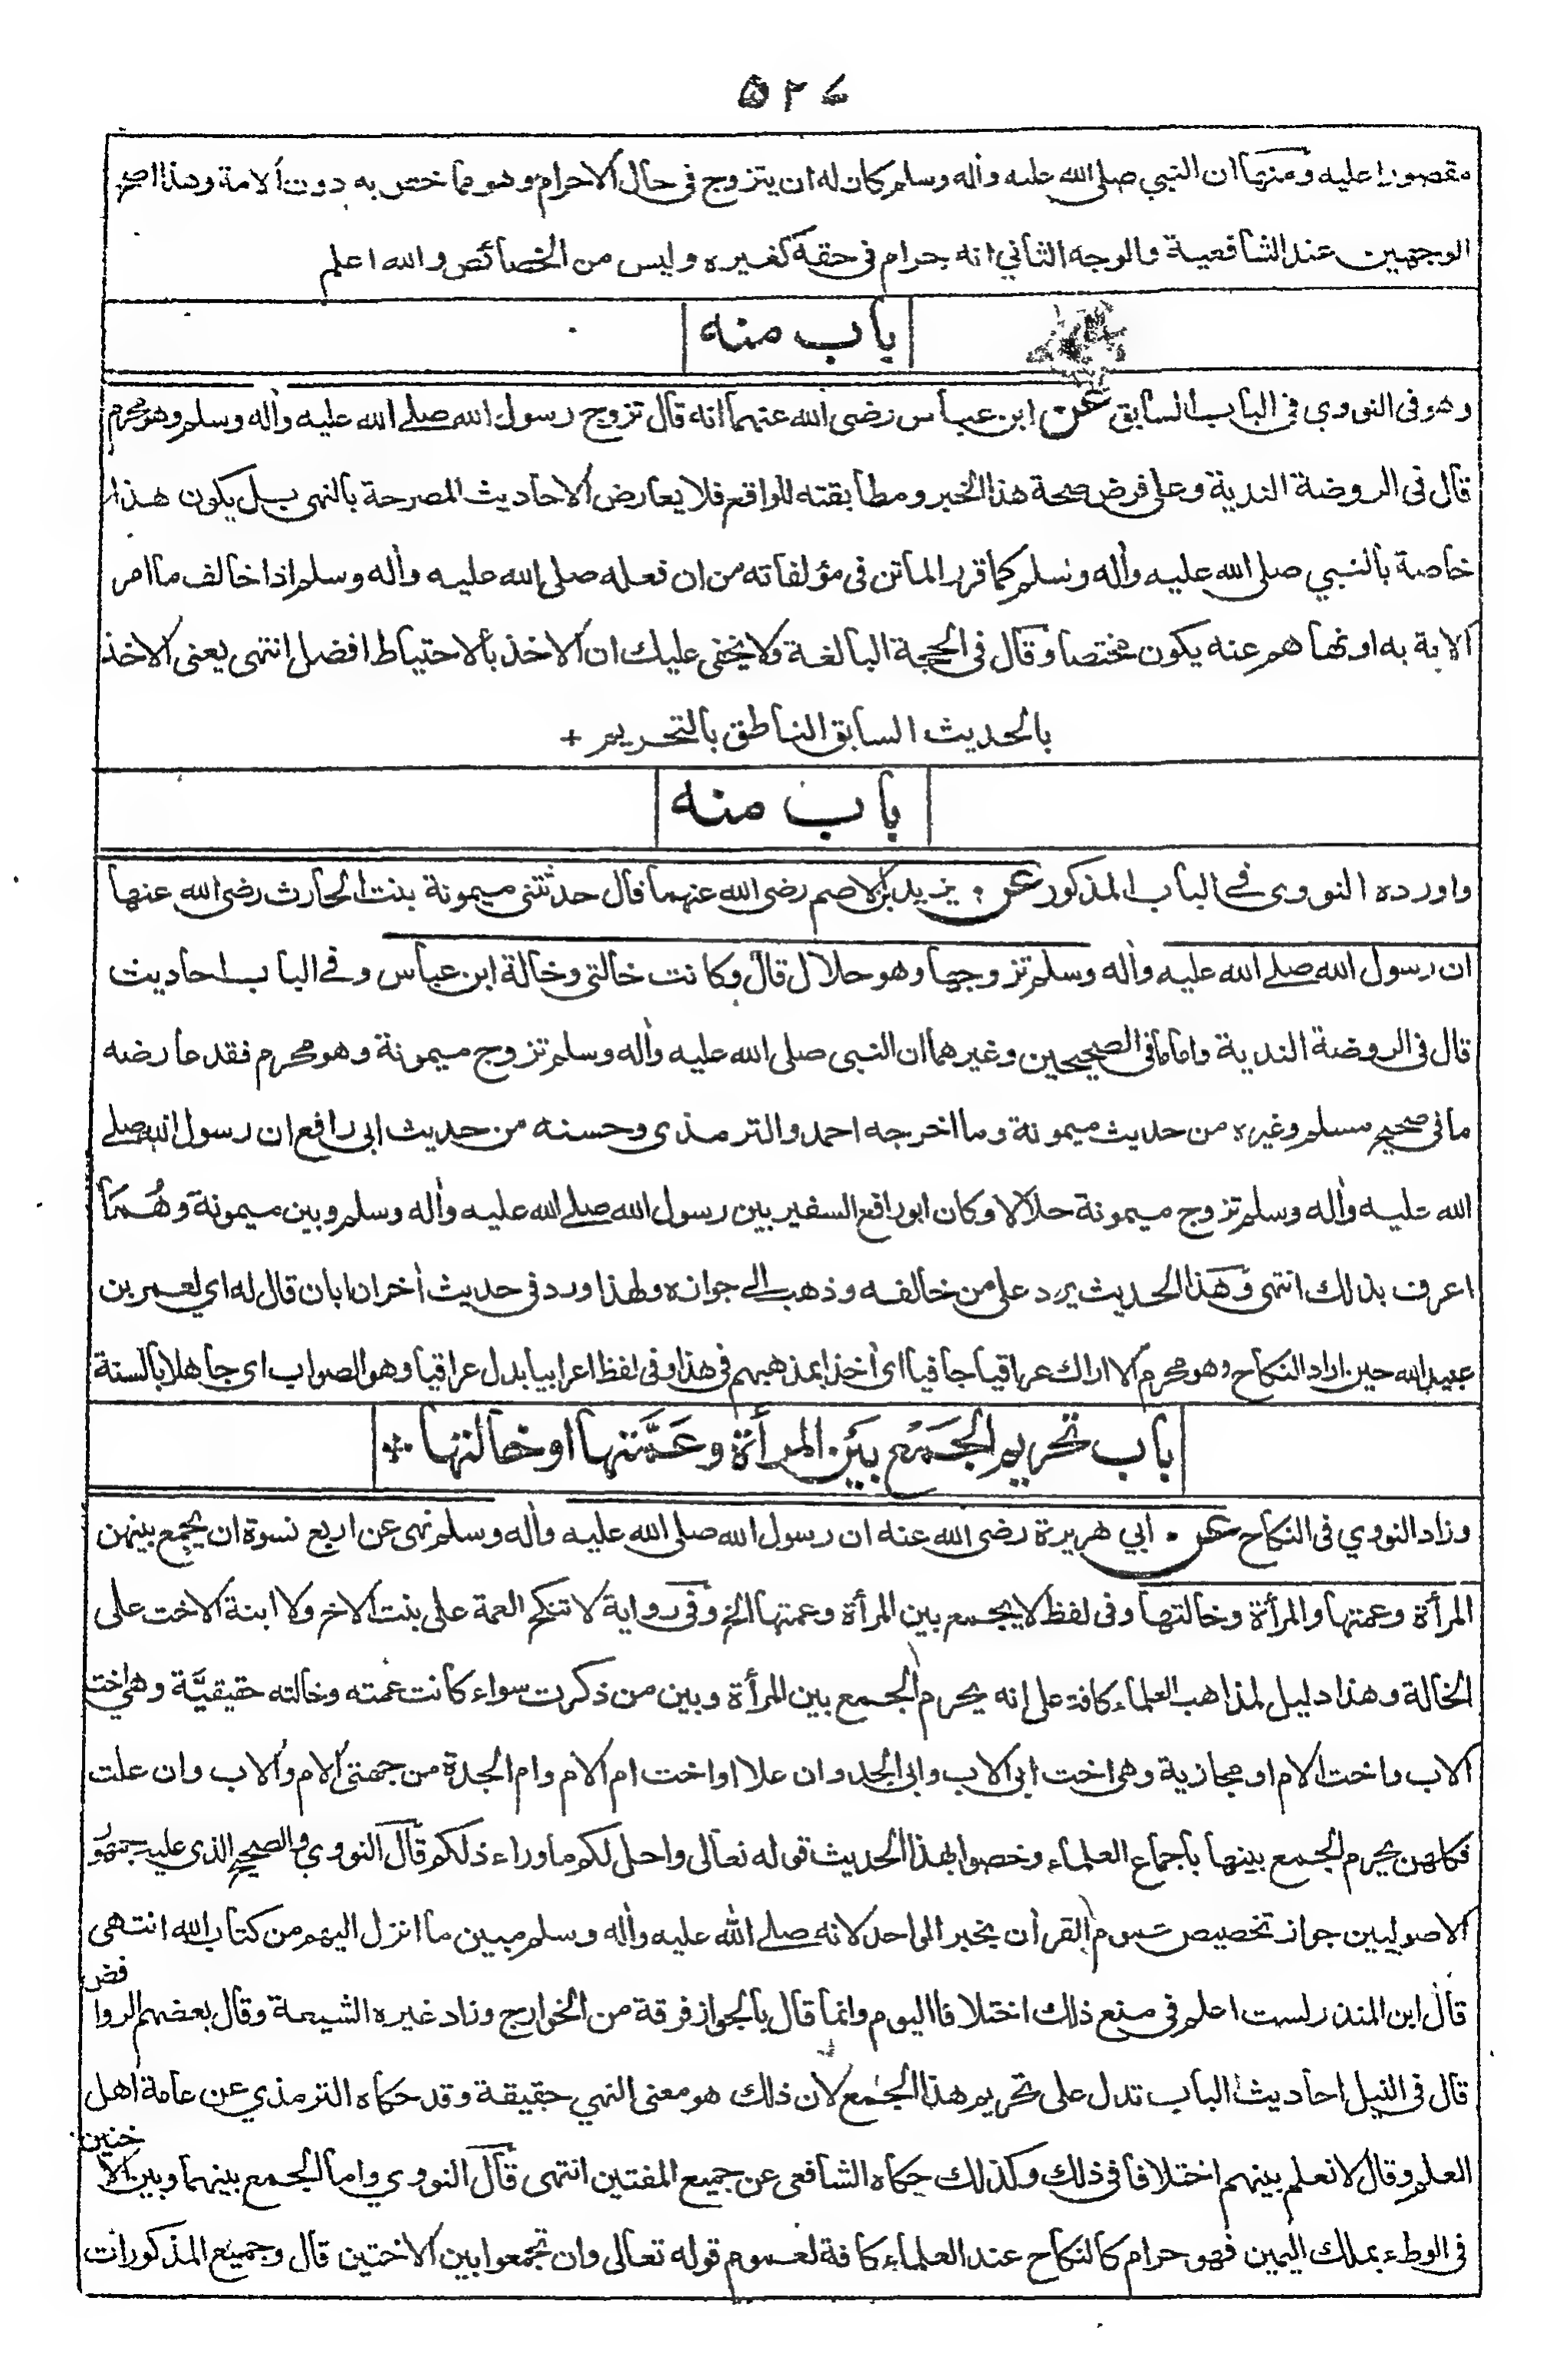 ٥٢٧
مقصورا عليه ومنها ان النبي صلى الله عليه وأله وسلم كان له ان يتزوج في حال الاحرام وهو مما خص به دون الامة وهذا اصح
الوجهين عند الشافعية والوجه الثاني انه حرام في حقه كغيره وليس من الخصائص والله اعلم
باب منه
وهو في النووي في الباب السابق عن ابن عباس رضي الله عنهما انه قال تزوج رسول الله صلى الله عليه وأله وسلم وهو محرم
قال في الروضة الندية وعلى فرض صحة هذا الخبر ومطابقته للواقع فلا يعارض الاحاديث المصرحة بالنهي بل يكون هذا
خاصة بالنبي صلى الله عليه وأله وسلم كما قرر الماتن في مؤلفاته من ان فعله صلى الله عليه وأله وسلم اذا خالف ما امر
الامة به او نهاهم عنه يكون مختصا وقال في الحجة البالغة ولا يخفى عليك ان الاخذ بالاحتياط افضل انتهى يعني الاخذ
بالحديث السابق الناطق بالتحريم +
باب منه
واورده النووي في الباب المذكور عن يزيد بن الاصم رضي الله عنهما قال حدثتني ميمونة بنت الحارث رضي الله عنها
ان رسول الله صلى الله عليه وأله وسلم تزوجها وهو حلال قال وكانت خالتي وخالة ابن عباس وفي الباب احاديث
قال في الروضة الندية واما ما في الصحيحين وغيرهما ان النبي صلى الله عليه وأله وسلم تزوج ميمونة وهو محرم فقد عارضه
ما في صحيح مسلم وغيره من حديث ميمونة وما اخرجه احمد والترمذي وحسنه من حديث ابي رافع ان رسول الله صلى
الله عليه وأله وسلم تزوج ميمونة حلالا وكان ابو رافع السفير بين رسول الله صلى الله عليه وأله وسلم وبين ميمونة وهُمَا
اعرف بذلك انتهى وهذا الحديث يرد على من خالفه وذهب الى جوازه ولهذا ورد في حديث أخر ان ابان قال له اي لعمر بن
عبيد الله حين اراد النكاح وهو محرم الا اراك عراقيا جافيا اي أخذا بمذهبهم في هذا وفي لفظ اعرابيا بدل عراقيا وهو الصواب اي جاهلا بالسنة
باب تحريم الجَمْع بَيْن المرأة وعَمَّتها او خالتها
وزاد النووي في النكاح عن ابي هريرة رضي الله عنه ان رسول الله صلى الله عليه وأله وسلم نهى عن اربع نسوة ان يجمع بينهن
المرأة وعمتها والمرأة وخالتها وفي لفظ لا يجمع بين المرأة وعمتها الخ وفي رواية لا تنكح العمة على بنت الاخ ولا ابنة الاخت على
الخالة وهذا دليل لمذاهب العلماء كافة على انه يحرم الجمع بين المرأة وبين من ذكرت سواء كانت عمته وخالته حقيقيَّة وهي اخت
الاب واخت الام او مجازية وهي اخت ابي الاب وابي الجد وان علا او اخت ام الام وام الجدة من جهتي الام والاب وان علت
فكلهن يحرم الجمع بينها باجماع العلماء وخصوا بهذا الحديث قوله تعالى واحل لكم ما وراء ذلكم قال النووي والصحيح الذي عليه جمهور
الاصوليين جواز تخصيص عموم القرأن بخبر الواحد لانه صلى الله عليه وأله وسلم مبين ما انزل اليهم من كتاب الله انتهى
قال ابن المنذر لست اعلم في منع ذلك اختلافا اليوم وانما قال بالجواز فرقة من الخوارج وزاد غيره الشيعة وقال بعضهم الروافض
قال في النيل احاديث الباب تدل على تحريم هذا الجمع لان ذلك هو معنى النهي حقيقة وقد حكاه الترمذي عن عامة اهل
العلم وقال لا نعلم بينهم اختلافا في ذلك وكذلك حكاه الشافعي عن جميع المفتين انتهى قال النووي واما الجمع بينهما وبين الاختين
في الوطء بملك اليمين فهو حرام كالنكاح عند العلماء كافة لعموم قوله تعالى وان تجمعوا بين الاختين قال وجميع المذكورات